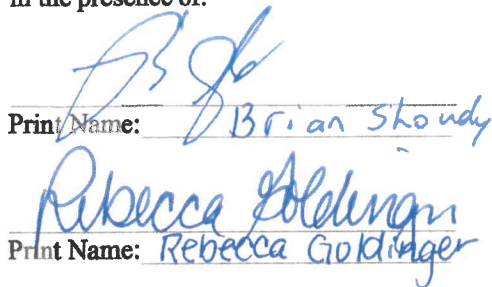 in the presence of:
Print Name: Brian Shoudy
Rebecca Goldinger
Print Name: Rebecca Goldinger